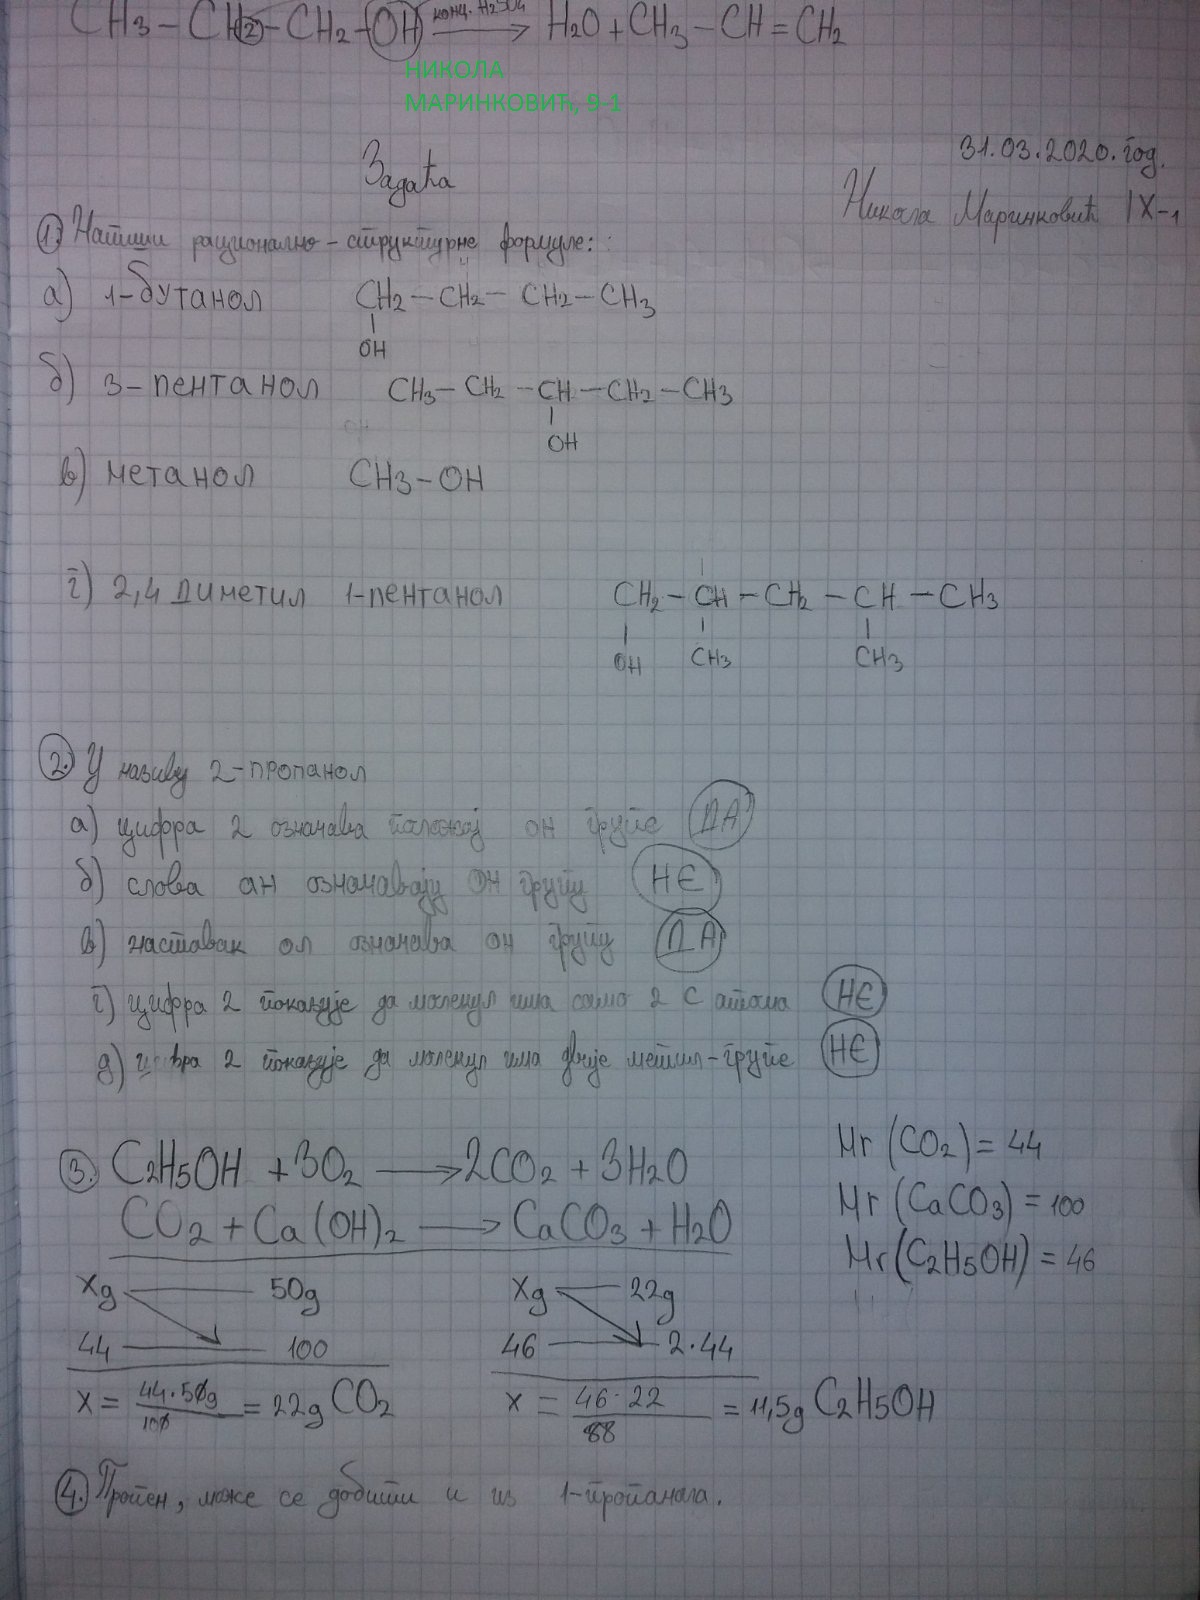 CH3 – CH2 – CH2 – OH конц. H2SO4 → H2O + CH3 – CH = CH2
НИКОЛА
МАРИНКОВИЋ, 9-1
31.03.2020. год.
Задаћа
Никола Маринковић IX-1
1. Напиши рационално-структурне формуле:
а) 1-бутанол CH2 – CH2 – CH2 – CH3
OH
б) 3-пентанол CH3 – CH2 – CH – CH2 – CH3
OH
в) метанол CH3 – OH
г) 2,4 диметил 1-пентанол CH2 – CH – CH2 – CH – CH3
OH CH3 CH3
2. У називу 2-пропанол
а) цифра 2 означава положај OH групе ДА
б) слова ан означавају OH групу НЕ
в) наставак ол означава OH групу ДА
г) цифра 2 показује да молекул има само 2 C атома НЕ
д) цифра 2 показује да молекул има двије метил-групе НЕ
3. C2H5OH + 3O2 → 2CO2 + 3H2O Mr (CO2) = 44
CO2 + Ca(OH)2 → CaCO3 + H2O Mr (CaCO3) = 100
Mr (C2H5OH) = 46
xg 50g xg 22g
44 100 46 2·44
x = 44·50g / 100 = 22g CO2 x = 46·22 / 88 = 11,5g C2H5OH
4. Пропен, може се добити и из 1-пропанола.